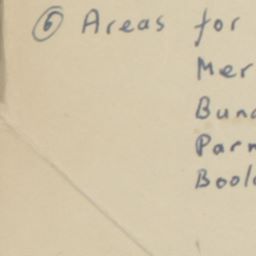 ⑥ Areas for
Mer
Bun
Parn
Bool